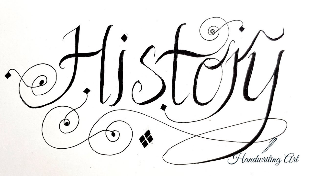 History
Handwriting Art